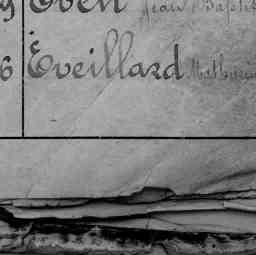 9 Even Jean Baptis
6 Eveillard Mathurin